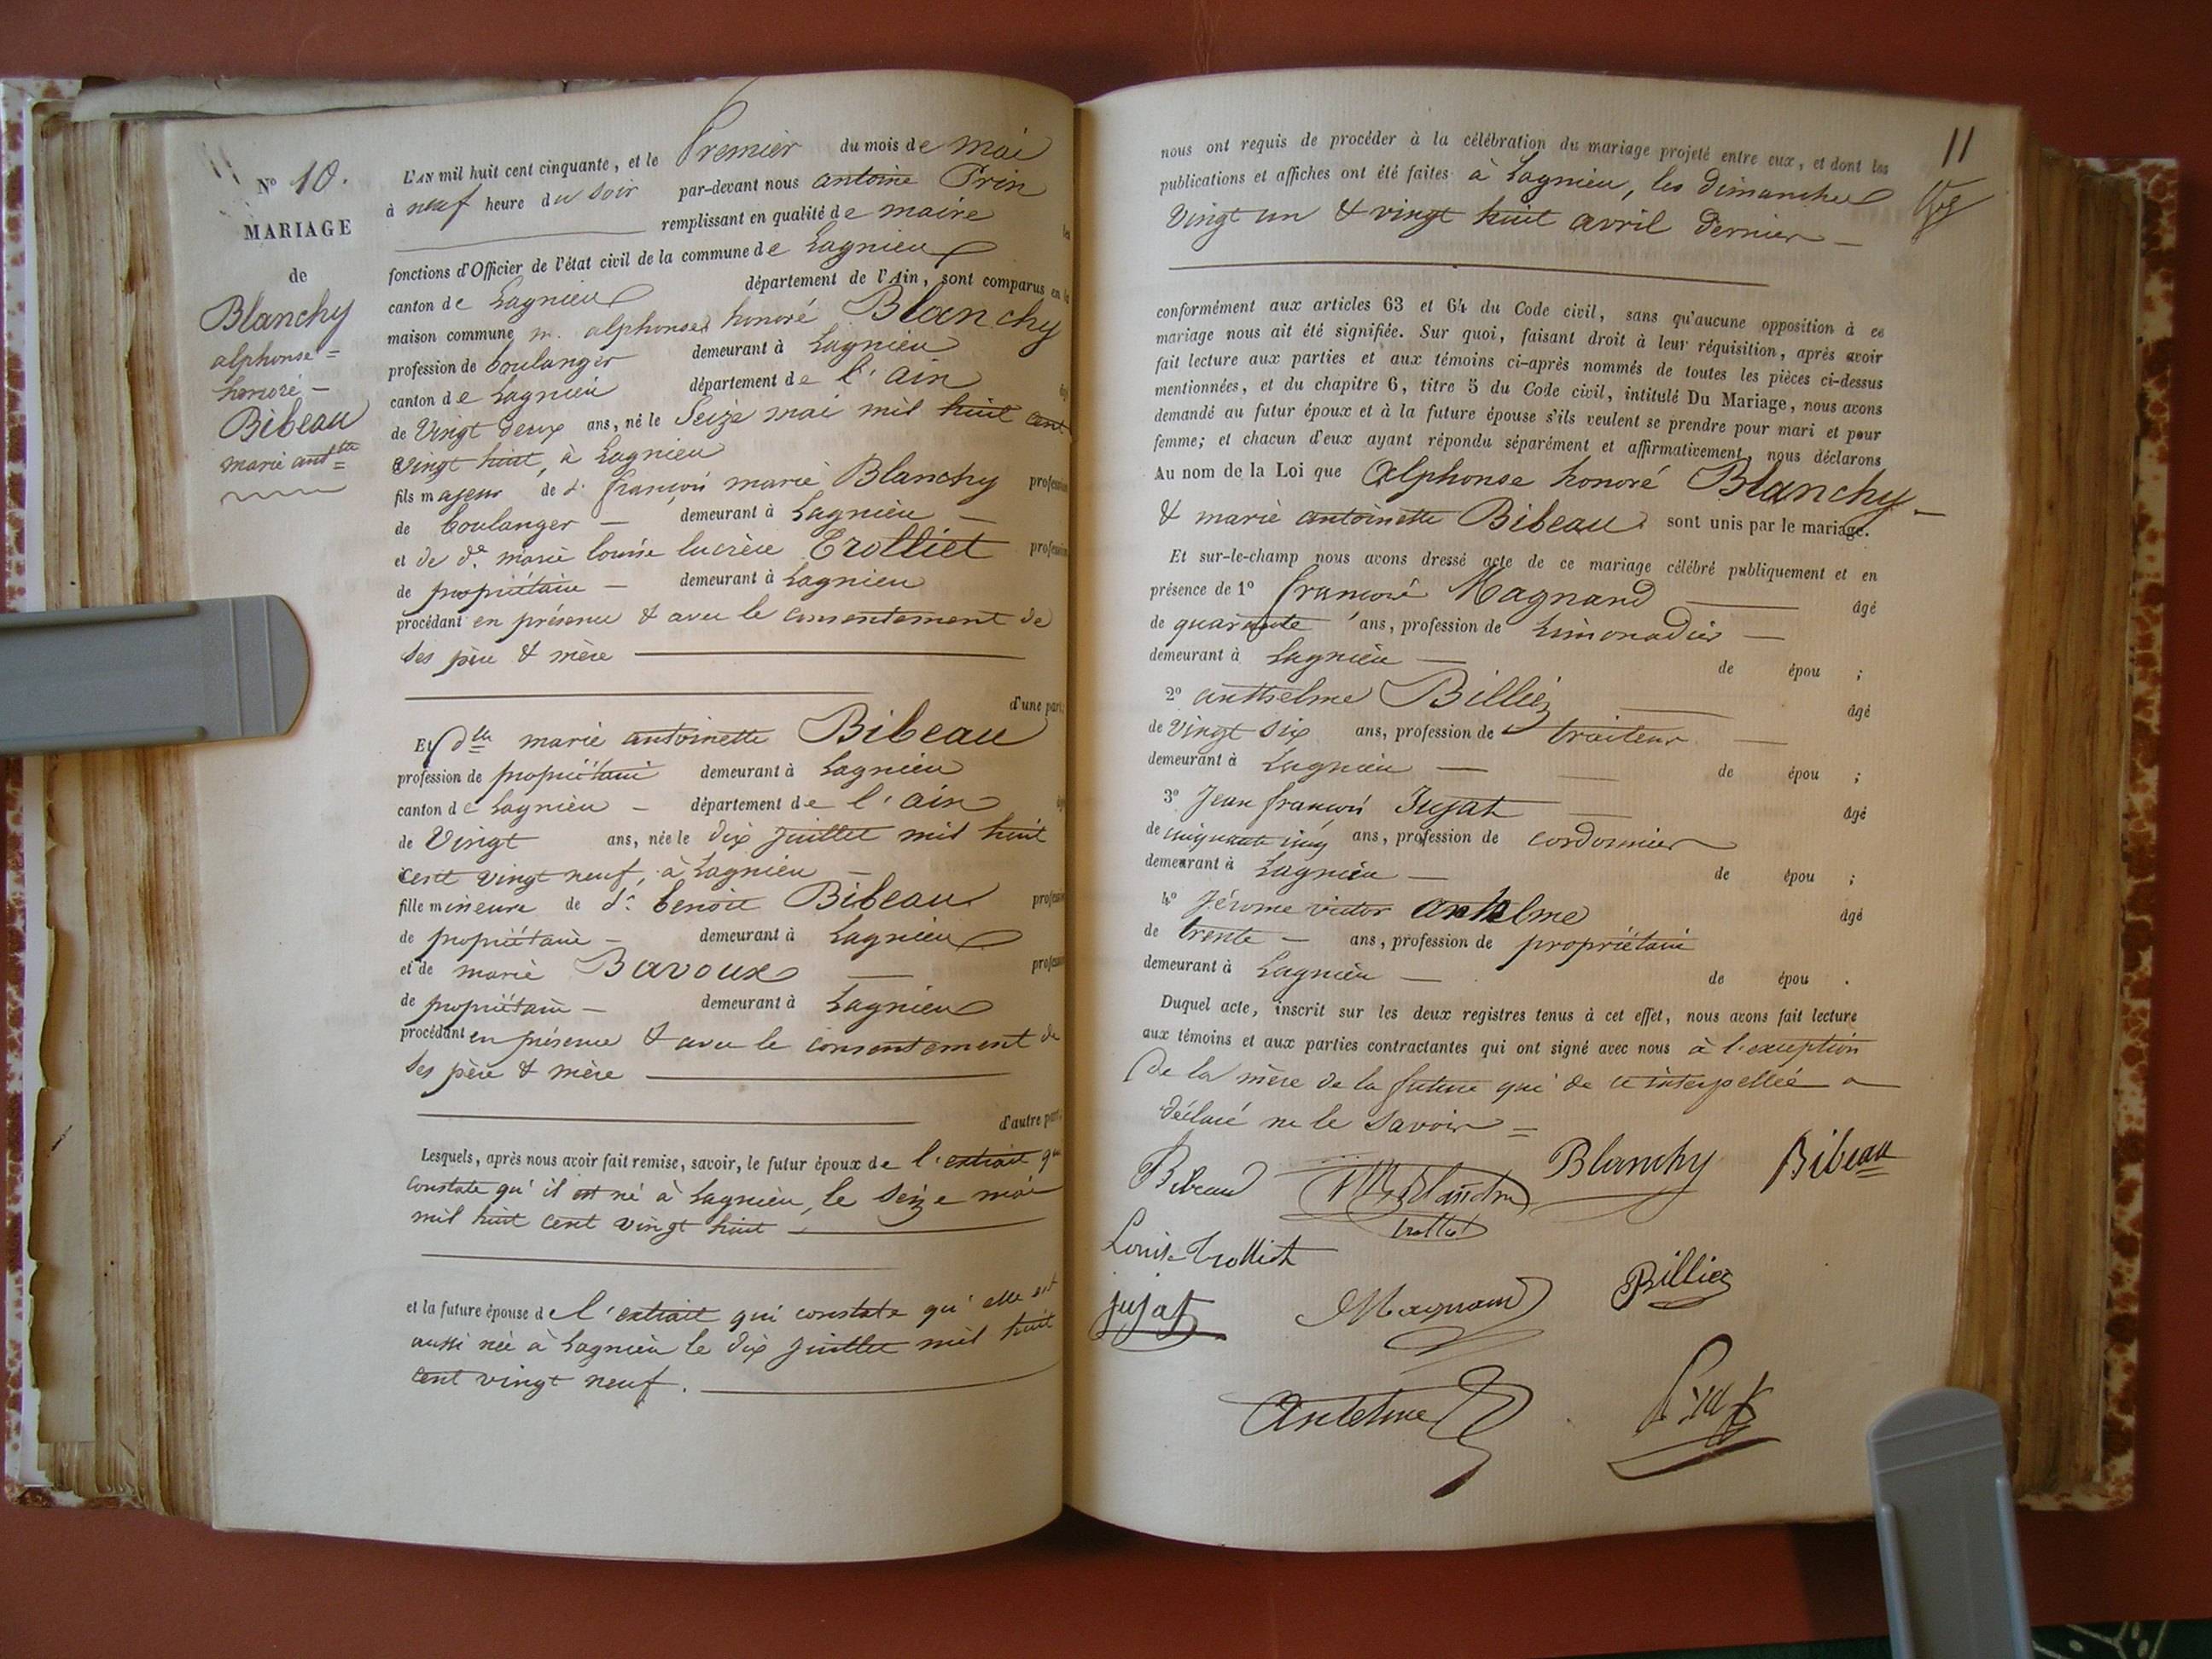 N° 10.
MARIAGE
de
Blanchy
alphonse =
honoré -
Bibeau
marie antte
L'AN mil huit cent cinquante, et le Premier du mois de mai
à neuf heure du soir par-devant nous antoine Prin
remplissant en qualité de maire les
fonctions d'Officier de l'état civil de la commune de Lagnieu
canton de Lagnieu département de l'Ain, sont comparus en la
maison commune m. alphonse honoré Blanchy
profession de boulanger demeurant à Lagnieu
canton de Lagnieu département de l'ain âgé
de Vingt deux ans, né le Seize mai mil huit cent
vingt huit, à Lagnieu
fils majeur de Sr françois marie Blanchy profession
de boulanger - demeurant à Lagnieu -
et de de marie louise lucrèce Trolliet profession
de propriétaire - demeurant à Lagnieu
procédant en présence & avec le consentement de
ses père & mère
d'une part;
Et dlle marie antoinette Bibeau
profession de propriétaire demeurant à Lagnieu
canton de Lagnieu - département de l'ain âgée
de Vingt ans, née le dix juillet mil huit
cent vingt neuf, à Lagnieu -
fille mineure de Sr benoit Bibeau profession
de propriétaire - demeurant à Lagnieu
et de marie Bavoux profession
de propriétaire - demeurant à Lagnieu
procédant en présence & avec le consentement de
ses père & mère
d'autre part.
Lesquels, après nous avoir fait remise, savoir, le futur époux de l'extrait qui
constate qu'il est né à Lagnieu, le seize mai
mil huit cent vingt huit
et la future épouse de l'extrait qui constate qu'elle est
aussi née à Lagnieu le dix juillet mil huit
cent vingt neuf.
11
nous ont requis de procéder à la célébration du mariage projeté entre eux, et dont les
publications et affiches ont été faites à Lagnieu, les dimanches
Vingt un & vingt huit avril dernier -
conformément aux articles 63 et 64 du Code civil, sans qu'aucune opposition à ce
mariage nous ait été signifiée. Sur quoi, faisant droit à leur réquisition, après avoir
fait lecture aux parties et aux témoins ci-après nommés de toutes les pièces ci-dessus
mentionnées, et du chapitre 6, titre 5 du Code civil, intitulé Du Mariage, nous avons
demandé au futur époux et à la future épouse s'ils veulent se prendre pour mari et pour
femme; et chacun d'eux ayant répondu séparément et affirmativement, nous déclarons
Au nom de la Loi que Alphonse honoré Blanchy -
& marie antoinette Bibeau sont unis par le mariage.
Et sur-le-champ nous avons dressé acte de ce mariage célébré publiquement et en
présence de 1° françois Magnand âgé
de quarante ans, profession de Limonadier -
demeurant à Lagnieu - de épou ;
2° anthelme Billiez âgé
de Vingt six ans, profession de traiteur -
demeurant à Lagnieu - de épou ;
3° Jean françois Jujat âgé
de cinquante cinq ans, profession de cordonnier
demeurant à Lagnieu - de épou ;
4° Jérome victor anthelme âgé
de trente - ans, profession de propriétaire
demeurant à Lagnieu - de épou .
Duquel acte, inscrit sur les deux registres tenus à cet effet, nous avons fait lecture
aux témoins et aux parties contractantes qui ont signé avec nous à l'exception
De la mère de la future qui de ce interpellée a
déclaré ne le savoir =
Bibeau Blanchy Blanchy Bibeau
Louise Trolliet
trolliet
jujat Magnand Billiez
Antelme Prin